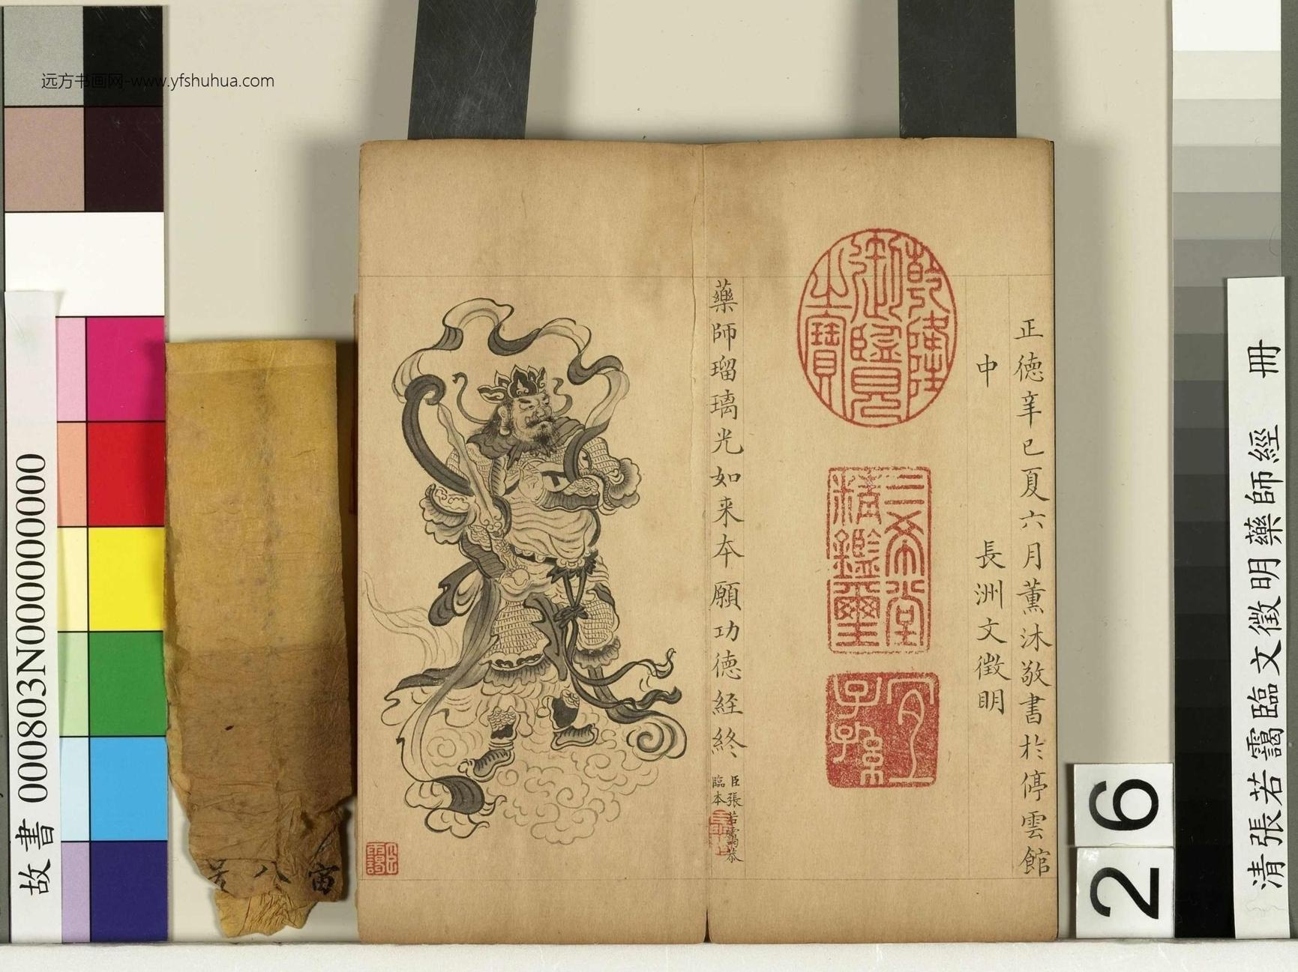 远方书画网-www.yfshuhua.com
正德辛巳夏六月薰沐敬書於停雲館
中
長洲文徵明
乾隆
御覽
之寶
三希堂
精鑑璽
宜
子孫
藥師瑠璃光如来本願功德経終
臣張若靄恭
臨本
故書 000803N000000000
26
清張若靄臨文徵明藥師經 冊